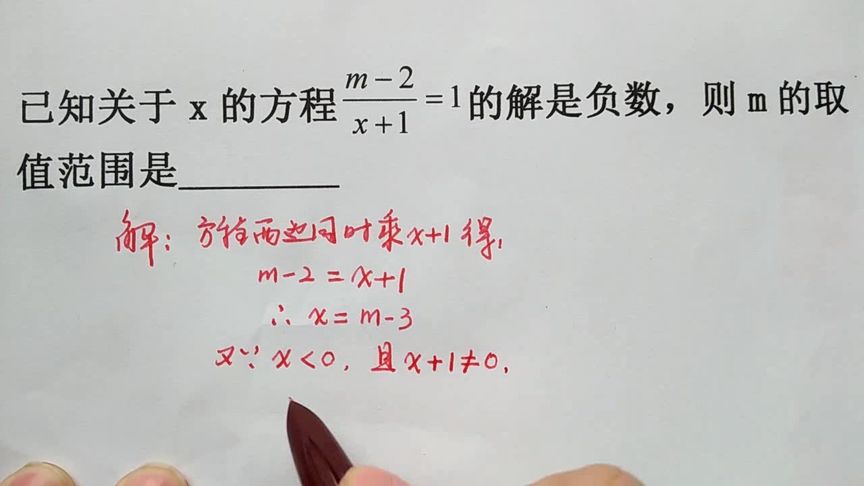 已知关于 x 的方程 \frac{m-2}{x+1}=1 的解是负数，则 m 的取
值范围是________
解：方程两边同时乘x+1得，
m-2=x+1
∴ x=m-3
又∵ x<0，且x+1≠0，